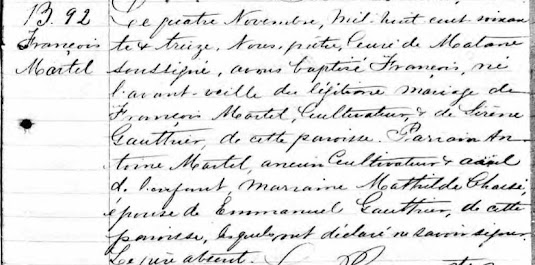 B. 92
François
Martel
Le quatre Novembre, mil-huit cent soixan
te & treize, Nous, prêtre, Curé de Matane
soussigné, avons baptisé François, né
l'avant-veille du légitime mariage de
François Martel, Cultivateur, & de
Gauthier, de cette paroisse. Parrain An
toine Martel, ancien Cultivateur & aieul
de l'enfant, Marraine Mathilde Chassé,
épouse de Emmanuel Gauthier, de cette
paroisse, lesquels ont déclaré ne savoir signer.
Le père absent.